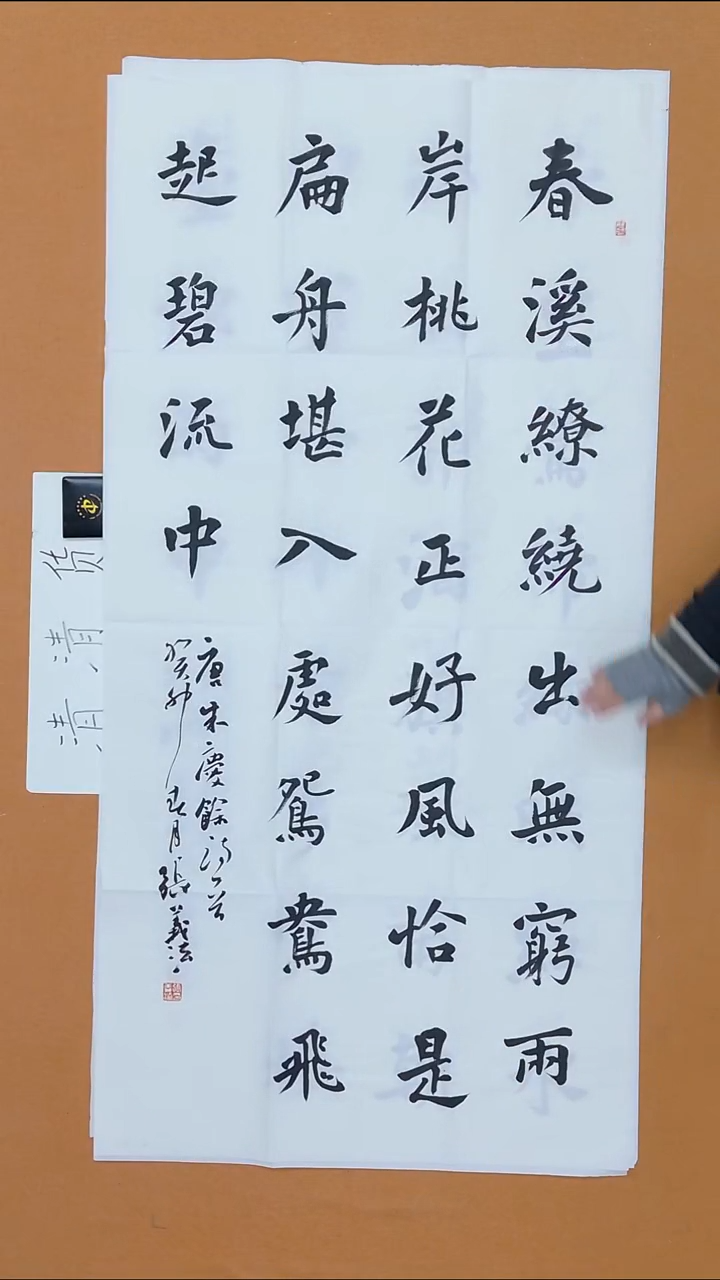 春溪繚繞出無窮兩
岸桃花正好風恰是
扁舟堪入處鴛鴦飛
起碧流中
唐朱慶餘詩一首
癸卯春月張義法